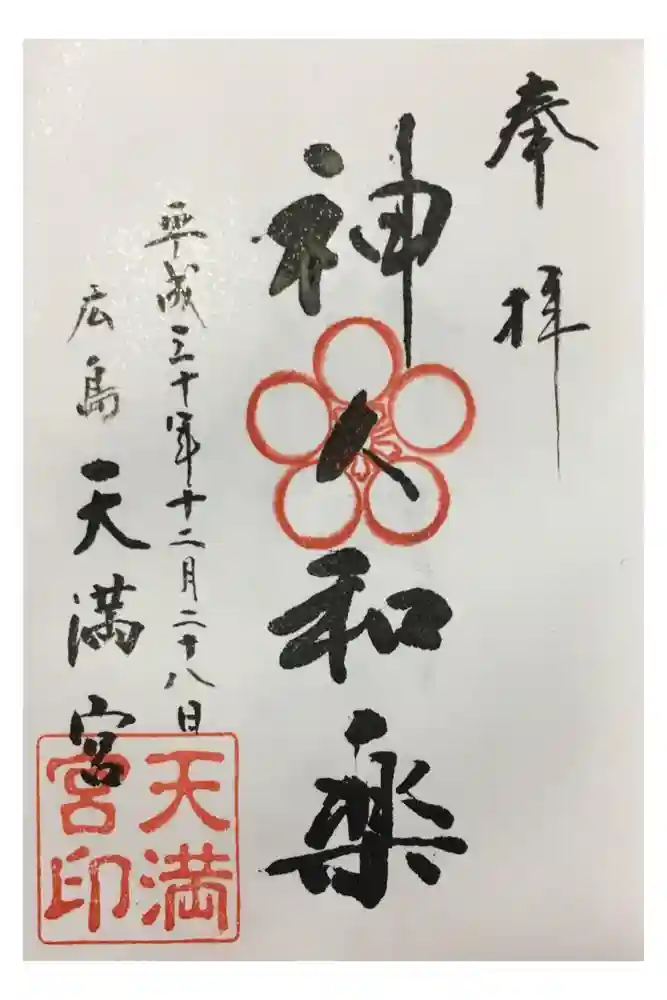 奉拝
神人和楽
平成三十年十二月二十八日
広島天満宮
天満宮印